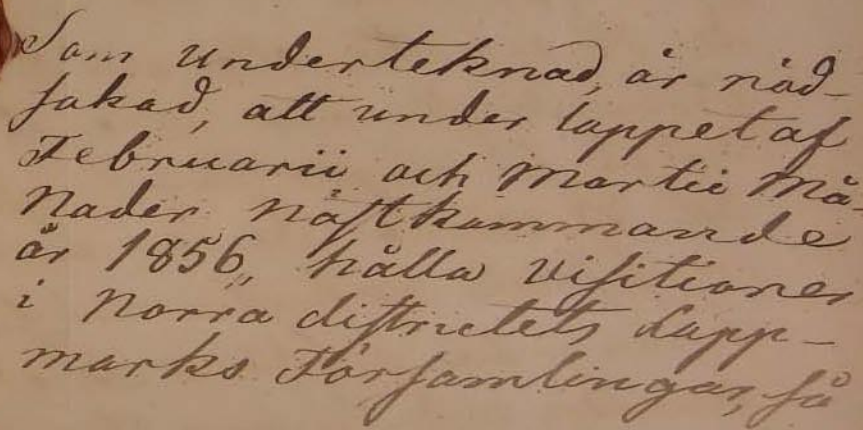 Som Underteknad, är nöd-
sakad, att under loppet af
Februarii och Martii Må-
nader näst kommande
år 1856, hålla Visitioner
i Norra districtets Lapp-
marks Församlingar, så